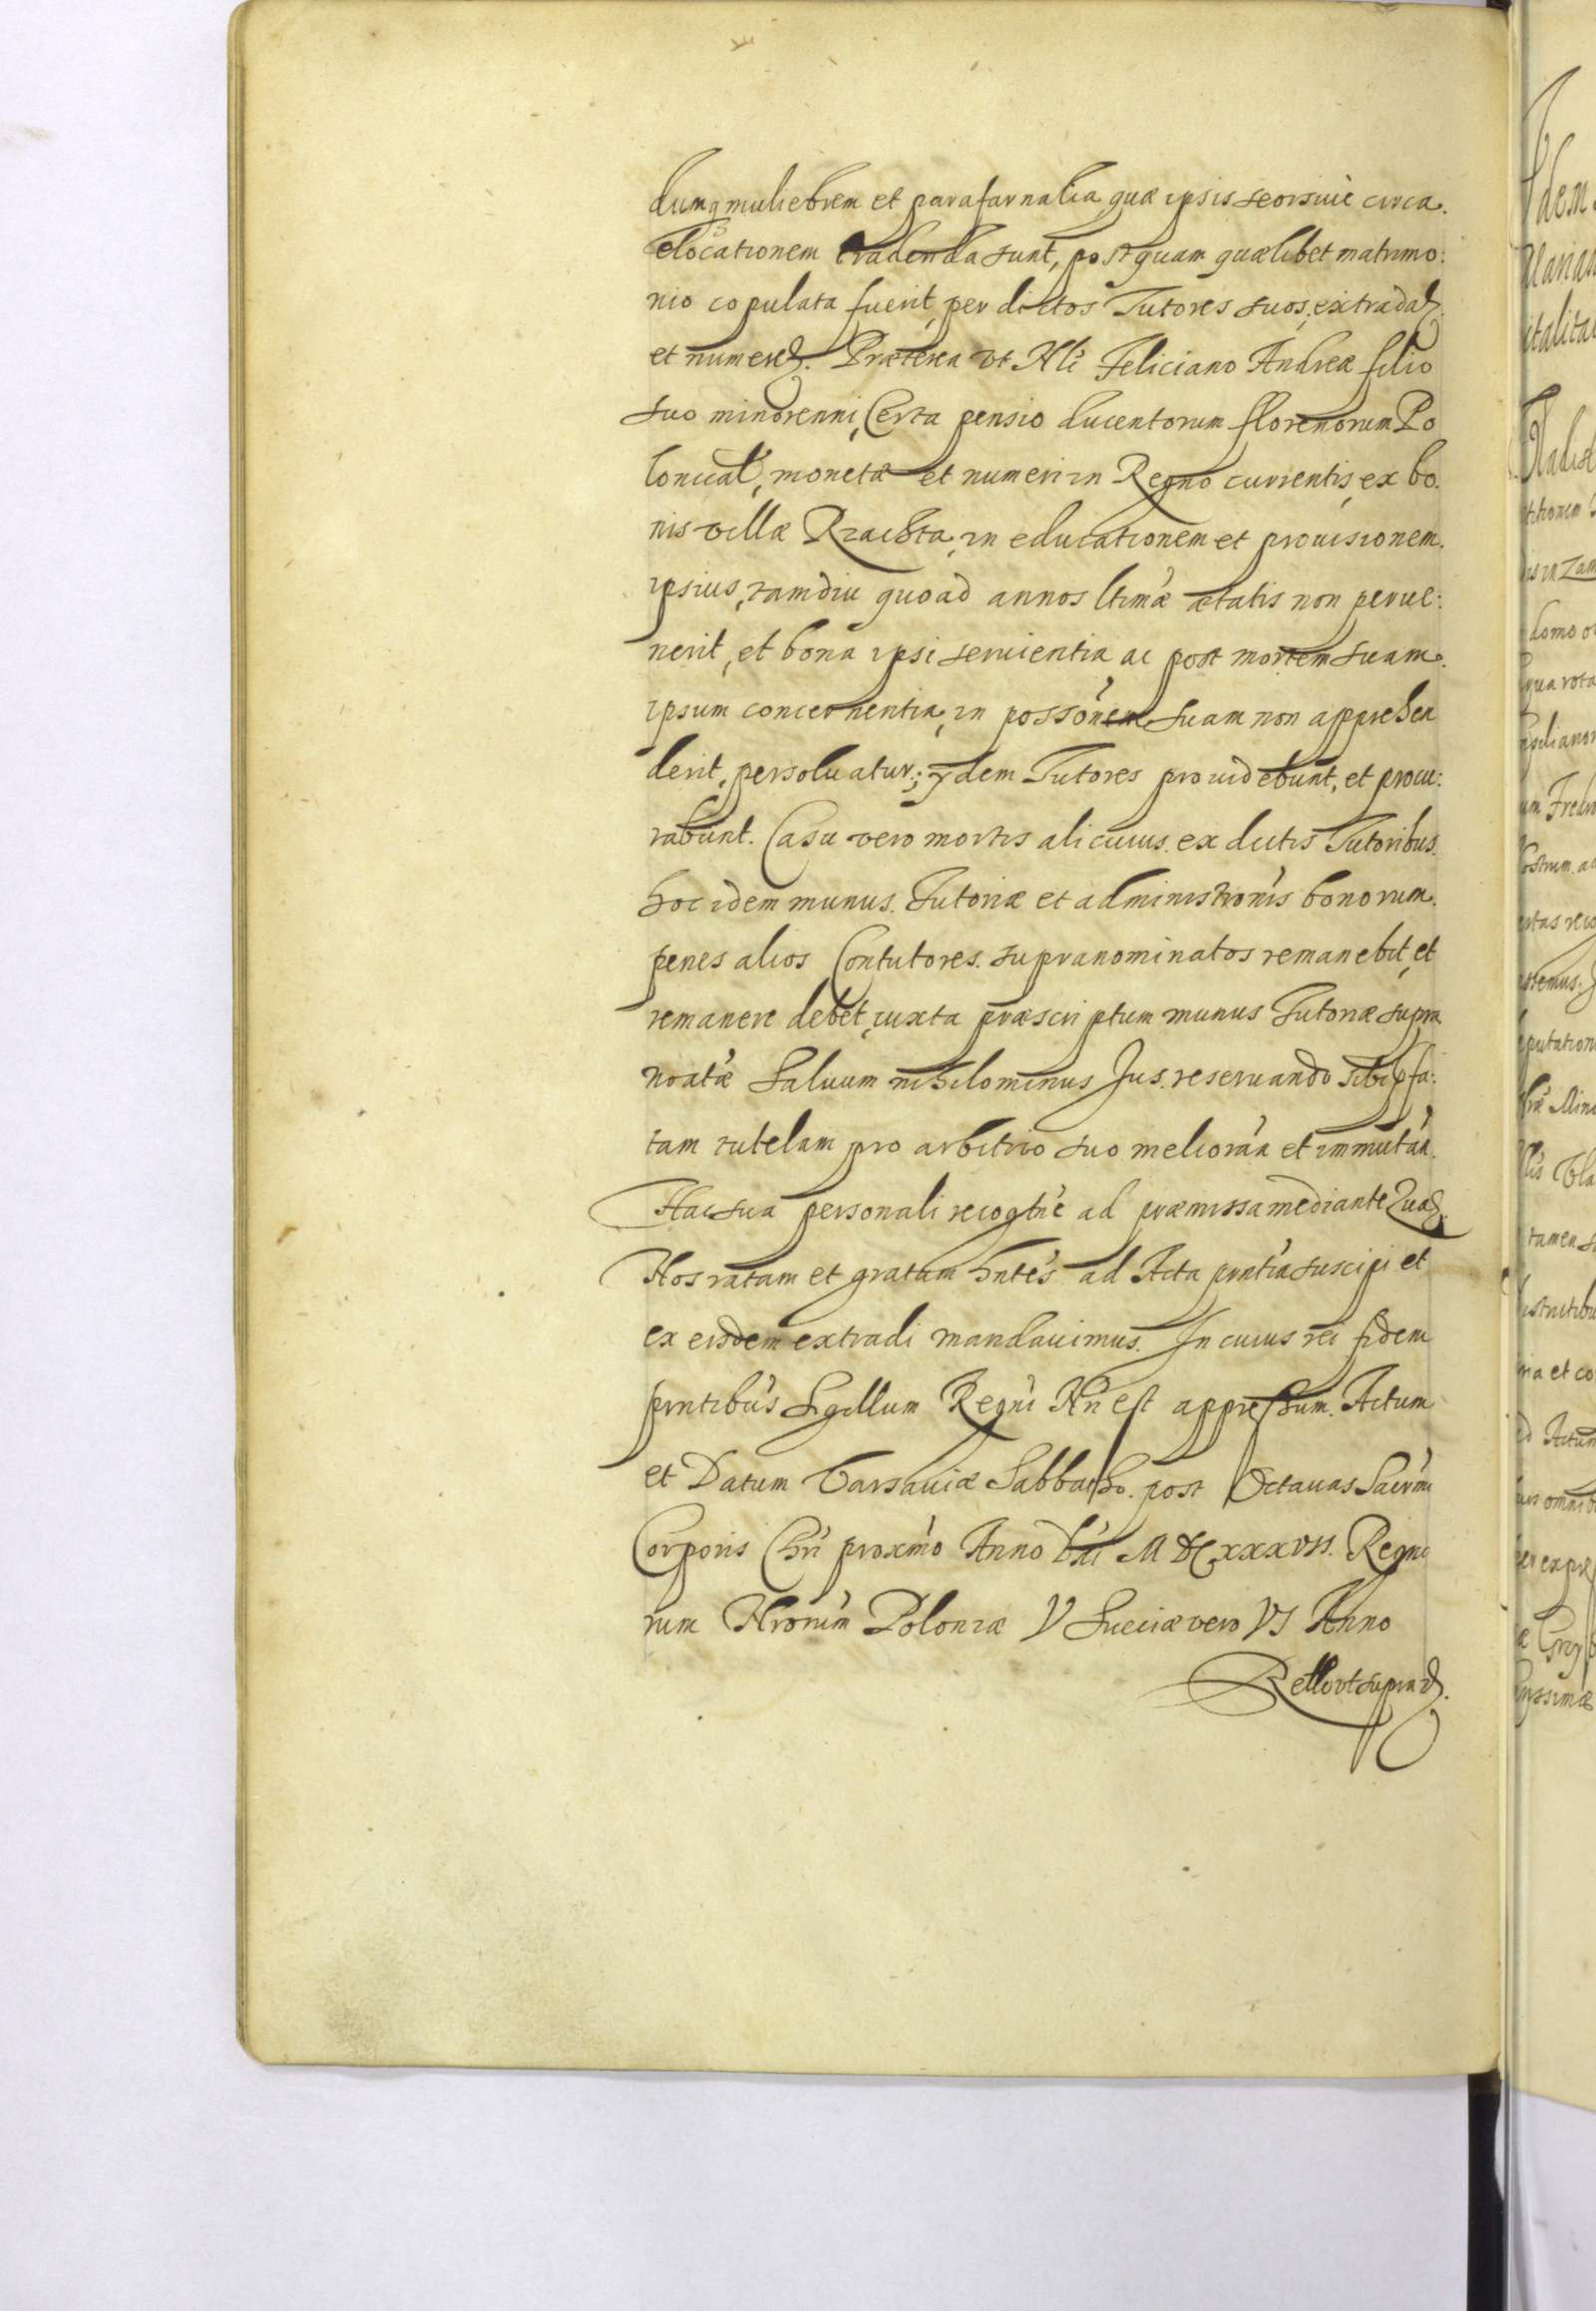 dumq muliebrem et parafarnalia quæ ipsis seorsivè circa
elocationem tradenda sunt, postquam quælibet matrimo:
nio copulata fuerit, per dictos Tutores suos, extradat
et numeret. Præterea vt Nli Feliciano Andreæ filio
suo minorenni, Certa pensio ducentorum florenorum Po
lonical, monetæ et numeri in Regno currentis, ex bo.
nis villæ in educationem et prouisionem.
ipsius, tamdiu quoad annos ltimæ ætatis non perue:
nerit, et bona ipsi seruientia ac post mortem suam
ipsum concernentia, in possonem suam non apprehen
derit, persoluatur; ydem Tutores prouidebunt, et procu:
rabunt. Casu vero mortis alicuius ex dictis Tutoribus.
hoc idem munus Tutoriæ et administronis bonorum.
penes alios Contutores supranominatos remanebit, et
remanere debet, iuxta præscriptum munus Tutoriæ supra
noatæ Saluum nihilominus Jus reseruando sibi pfa:
tam tutelam pro arbitrio suo melioran et immutan.
Hac sua personali recogtne ad præmissa mediante Quã
Nos ratam et gratam hntes ad Acta prntia suscipi et
ex eisdem extradi mandauimus. In cuius rei fidem
prntibus Sigillum Regni Nri est appressum. Actum
et Datum Varsauiæ Sabbatho post Octauas Sacrmi
Corporis Chri proxmo Anno Dni M DC xxxvii. Regno
rum Nrorum Poloniæ V Sueciæ vero VI Anno